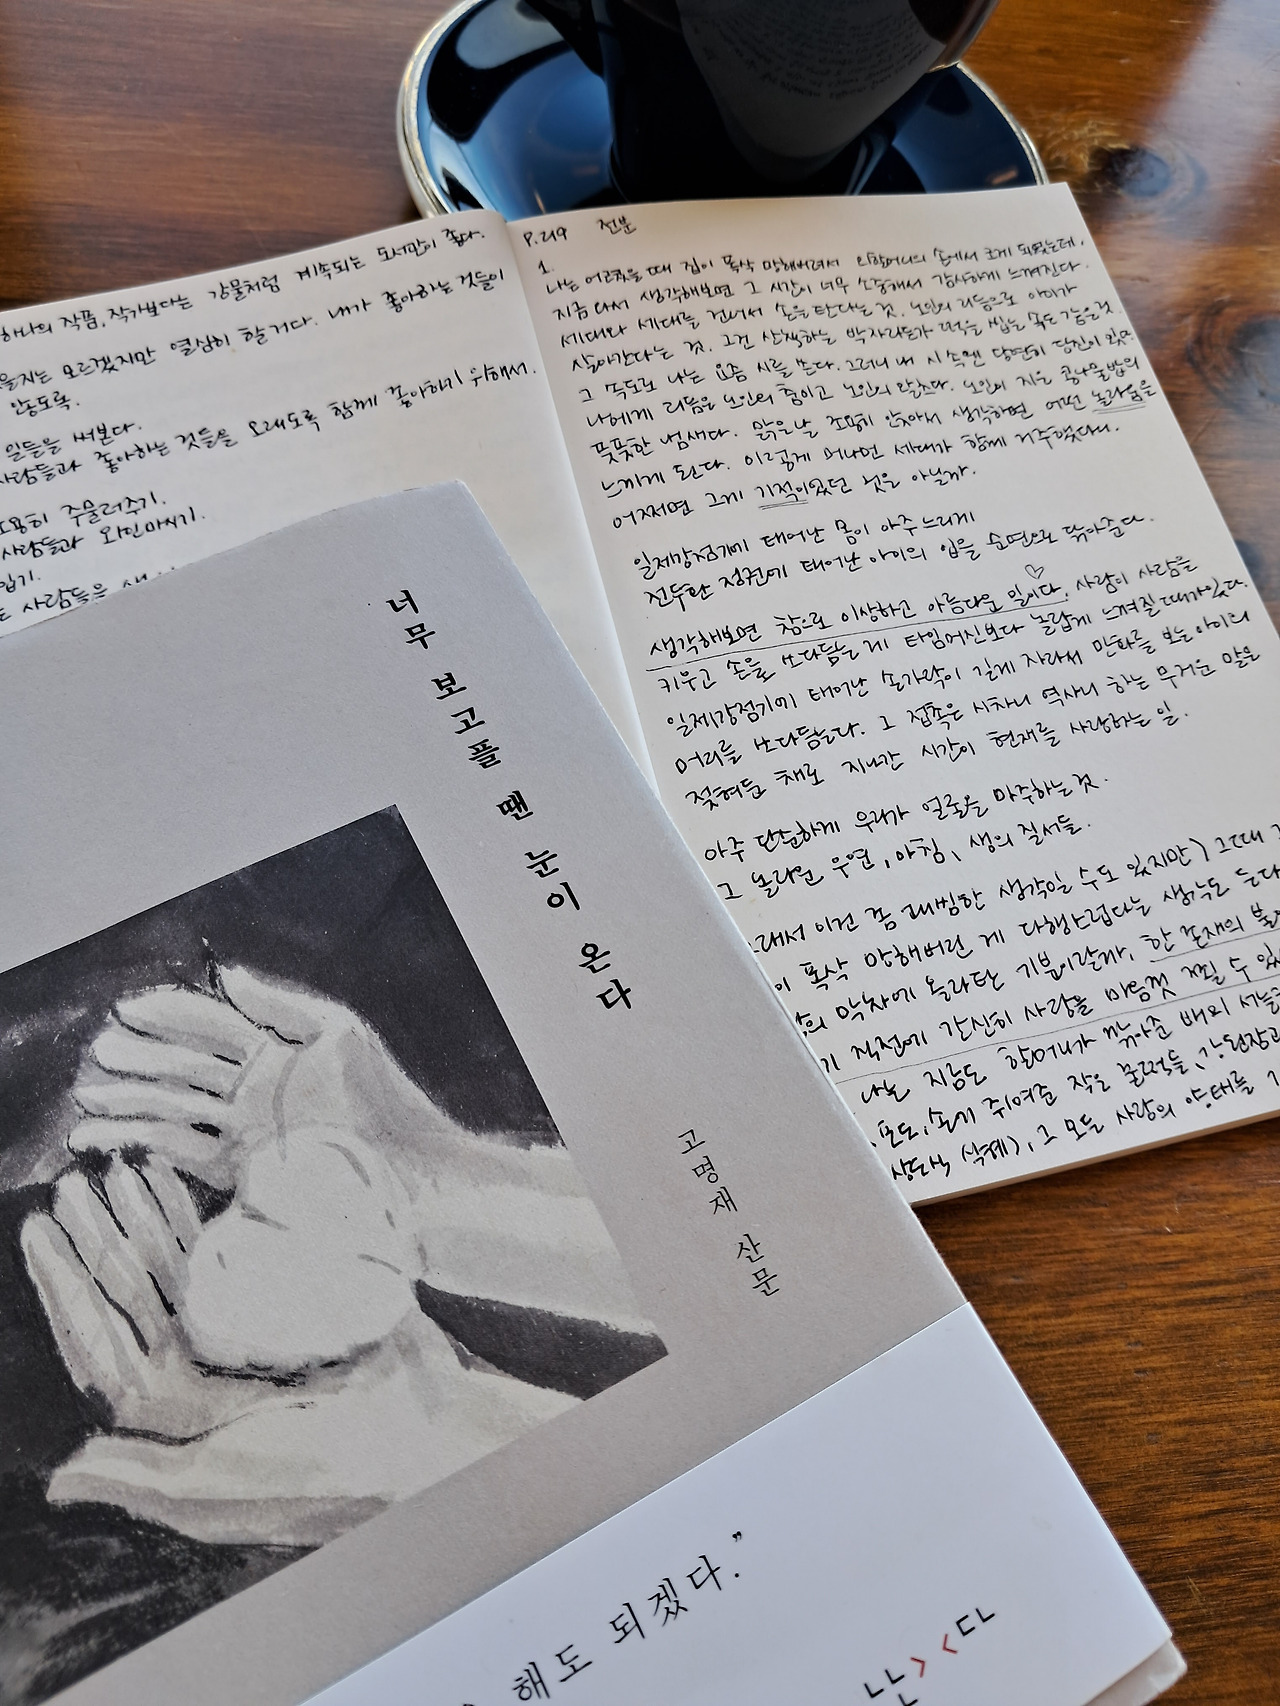 하나의 작품, 작가보다는 강물처럼 계속되는 도서관이 좋다.
모르겠지만 열심히 할거다. 내가 좋아하는 것들이
않도록.
일들을 써본다.
사람들과 좋아하는 것들을 오래도록 함께 좋아하기 위해서.
조용히 주물러주기.
사람들과 와인마시기.
입기.
사람들을
P.219 전문
1.
나는 어렸을 때 집이 폭삭 망해버려서 외할머니의 손에서 크게 되었는데,
지금 다시 생각해보면 그 시간이 너무 소중해서 감사하게 느껴진다.
세대와 세대를 건너서 손을 탄다는 것. 노인의 리듬으로 아이가
살아간다는 것. 그건 산책하는 박자라든가 떡을 씹는 속도 같은 것.
그 속도로 나는 요즘 시를 쓴다. 그러니 내 시 속엔 당연히 당신이 있고
나에게 리듬은 노인의 춤이고 노인의 말씨다. 노인이 지은 콩나물밥의
풋풋한 냄새다. 맑은날 조용히 앉아서 생각하면 어떤 놀라움을
느끼게 된다. 이렇게 머나먼 세대가 함께 거주했다니.
어쩌면 그게 기적이었던 것은 아닐까.
일제강점기에 태어난 몸이 아주 느리게
전두환 정권에 태어난 아이의 입을 순면으로 닦아준다.
생각해보면 참으로 이상하고 아름다운 일이다. 사람이 사람을
키우고 손을 쓰다듬는 게 타임머신보다 놀랍게 느껴질 때가 있다.
일제강점기에 태어난 손가락이 길게 자라서 만화를 보는 아이의
머리를 쓰다듬는다. 그 접촉은 시차니 역사니 하는 무거운 말은
젖혀둔 채로 지나간 시간이 현재를 사랑하는 일.
아주 단순하게 우리가 얼굴을 마주하는 것.
그 놀라운 우연, 아침, 생의 질서들.
그래서 이건 좀 대범한 생각일 수도 있지만) 그때
폭삭 망해버린 게 다행스럽다는 생각도 든다
막차에 올라탄 기분이랄까, 한 존재의 불
직전에 간신히 사랑을 마음껏 쬘 수 있
나는 지금도 할머니가 깎아준 배의 서늘
손에 쥐여준 작은 물건들, 강된장과
식혜), 그 모든 사랑의 양태를
너무 보고플 땐 눈이 온다
고명재 산문
해도 되겠다.”
ㄴㄴ><ㄷㄴ